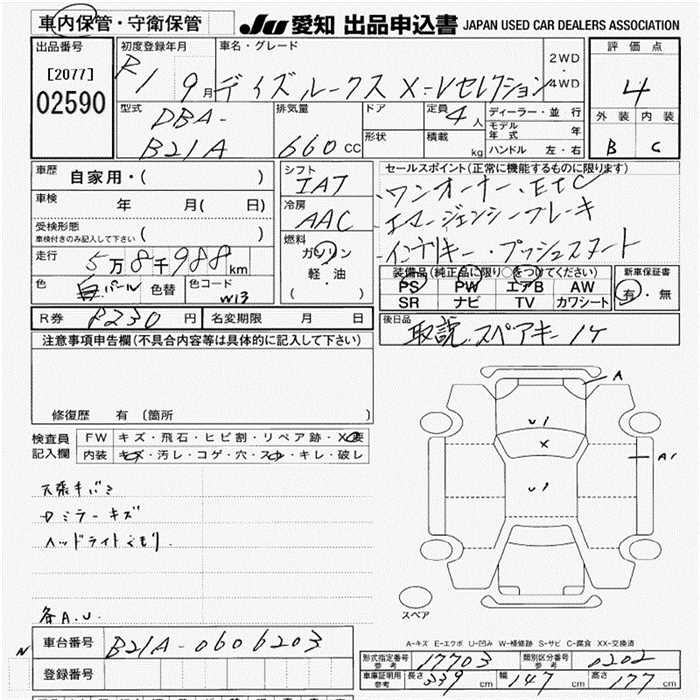 車内保管・守衛保管
JU 愛知 出品申込書 JAPAN USED CAR DEALERS ASSOCIATION
出品番号
[2077]
02590
初度登録年月
R1 9月
車名・グレード
デイズルークス X-Vセレクション
2WD・4WD
評価点
4
外装 内装
B C
型式
DBA-
B21A
排気量
660 CC
ドア
形状
定員 4人
積載 kg
ディーラー・並行
モデル年式 年
ハンドル 左・右
車歴
自家用・( )
車検
年 月( 日)
受検形態
車検付きのみ記入して下さい ( )
走行
5万8千988km
色
白パール
色替
色コード
W13
シフト
IAT
冷房
AAC
燃料
ガソリン
軽・油
( )
セールスポイント(正常に機能するものに限ります)
・ワンオーナー・ETC
・エマージェンシーブレーキ
・インテリキー・プッシュスタート
装備品(純正品に限り○をつけてください)
PS PW エアB AW
SR ナビ TV カワシート
新車保証書
有・無
R券 円
名変期限 月 日
後日品
取説 スペアキー 1ケ
注意事項申告欄(不具合内容等は具体的に記入して下さい)
修復歴 有 〔箇所
検査員記入欄
FW キズ・飛石・ヒビ割・リペア跡・X要
内装 キズ・汚レ・コゲ・穴・スレ・キレ・破レ
天張キバミ
Dミラーキズ
ヘッドライトくもり
各A.U.
A
U1
X
U1
A1
スペア
A-キズ E-エクボ U-凹み W-補修跡 S-サビ C-腐食 XX-交換済
車台番号
B21A-0606203
登録番号
形式指定番号 参考
17703
類別区分番号 参考
0202
車庫証明用 参考
長さ 339cm
幅 147cm
高さ 177cm